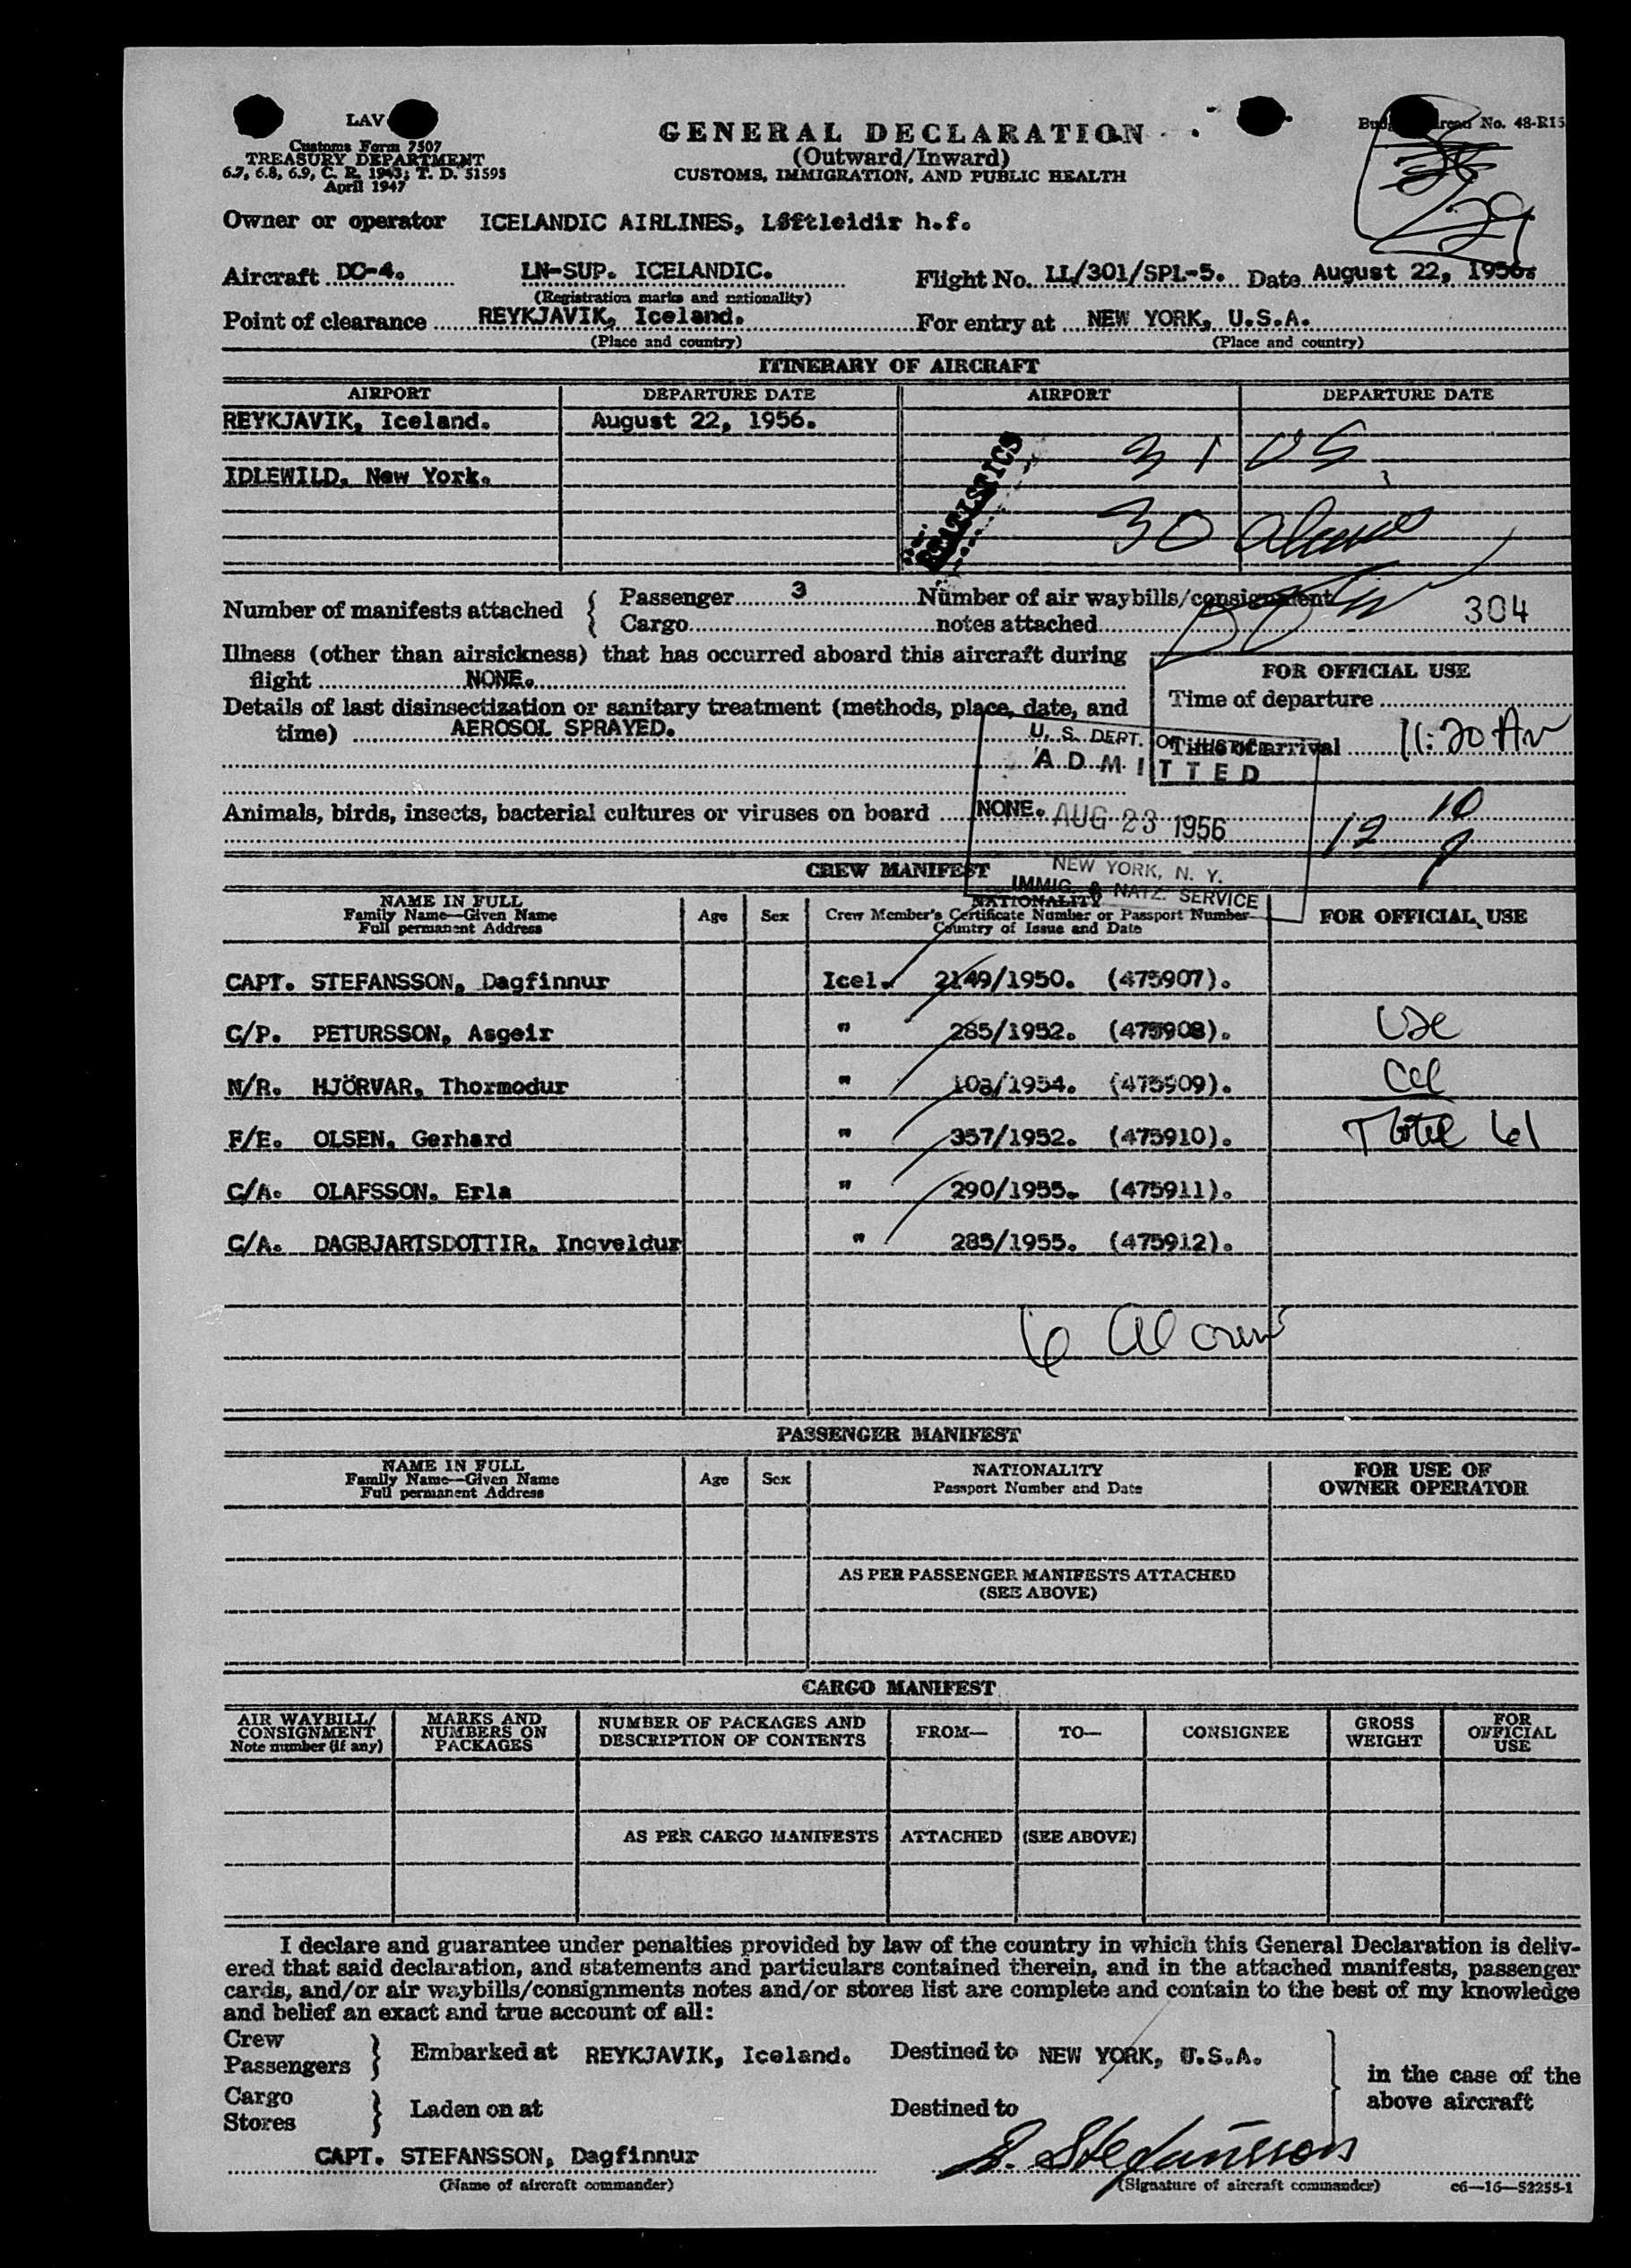 LAV
Customs Form 7507
TREASURY DEPARTMENT
6.7, 6.8, 6.9, C. R. 1943; T. D. 51595
April 1947
GENERAL DECLARATION
(Outward/Inward)
CUSTOMS, IMMIGRATION, AND PUBLIC HEALTH
No. 48-R15
Owner or operator ICELANDIC AIRLINES, Løftleidir h.f.
Aircraft DC-4. LN-SUP. ICELANDIC. Flight No. LL/301/SPL-5. Date August 22, 1956.
(Registration marks and nationality)
Point of clearance REYKJAVIK, Iceland. For entry at NEW YORK, U.S.A.
(Place and country) (Place and country)
ITINERARY OF AIRCRAFT
AIRPORT DEPARTURE DATE AIRPORT DEPARTURE DATE
REYKJAVIK, Iceland. August 22, 1956.
STATISTICS
31 US
IDLEWILD, New York.
30 aliens
Number of manifests attached { Passenger 3 Number of air waybills/consignment
Cargo notes attached 304
Illness (other than airsickness) that has occurred aboard this aircraft during
flight NONE.
FOR OFFICIAL USE
Time of departure
Details of last disinsectization or sanitary treatment (methods, place, date, and
time) AEROSOL SPRAYED.
Time of arrival 11:20 AM
U. S. DEPT. OF JUSTICE
ADMITTED
Animals, birds, insects, bacterial cultures or viruses on board NONE.
AUG 23 1956
12 10
NEW YORK, N. Y.
IMMIG. & NATZ. SERVICE
CREW MANIFEST
NAME IN FULL
Family Name—Given Name
Full permanent Address
Age Sex
NATIONALITY
Crew Member's Certificate Number or Passport Number
Country of Issue and Date
FOR OFFICIAL USE
CAPT. STEFANSSON, Dagfinnur Icel. 2149/1950. (475907).
C/P. PETURSSON, Asgeir " 285/1952. (475908).
N/R. HJÖRVAR, Thormodur " (475909).
F/E. OLSEN, Gerhard " 357/1952. (475910).
Total 61
C/A. OLAFSSON, Erla " 290/1955. (475911).
C/A. DAGBJARTSDOTTIR, Ingveldur " 285/1955. (475912).
6 al crew
PASSENGER MANIFEST
NAME IN FULL
Family Name—Given Name
Full permanent Address
Age Sex
NATIONALITY
Passport Number and Date
FOR USE OF
OWNER OPERATOR
AS PER PASSENGER MANIFESTS ATTACHED
(SEE ABOVE)
CARGO MANIFEST
AIR WAYBILL/
CONSIGNMENT
Note number (if any)
MARKS AND
NUMBERS ON
PACKAGES
NUMBER OF PACKAGES AND
DESCRIPTION OF CONTENTS
FROM— TO— CONSIGNEE
GROSS
WEIGHT
FOR
OFFICIAL
USE
AS PER CARGO MANIFESTS ATTACHED (SEE ABOVE)
I declare and guarantee under penalties provided by law of the country in which this General Declaration is deliv-
ered that said declaration, and statements and particulars contained therein, and in the attached manifests, passenger
cards, and/or air waybills/consignments notes and/or stores list are complete and contain to the best of my knowledge
and belief an exact and true account of all:
Crew
Passengers } Embarked at REYKJAVIK, Iceland. Destined to NEW YORK, U.S.A.
in the case of the
above aircraft
Cargo
Stores } Laden on at Destined to
CAPT. STEFANSSON, Dagfinnur
D. Stefánsson
(Name of aircraft commander) (Signature of aircraft commander) c6—16—52255-1